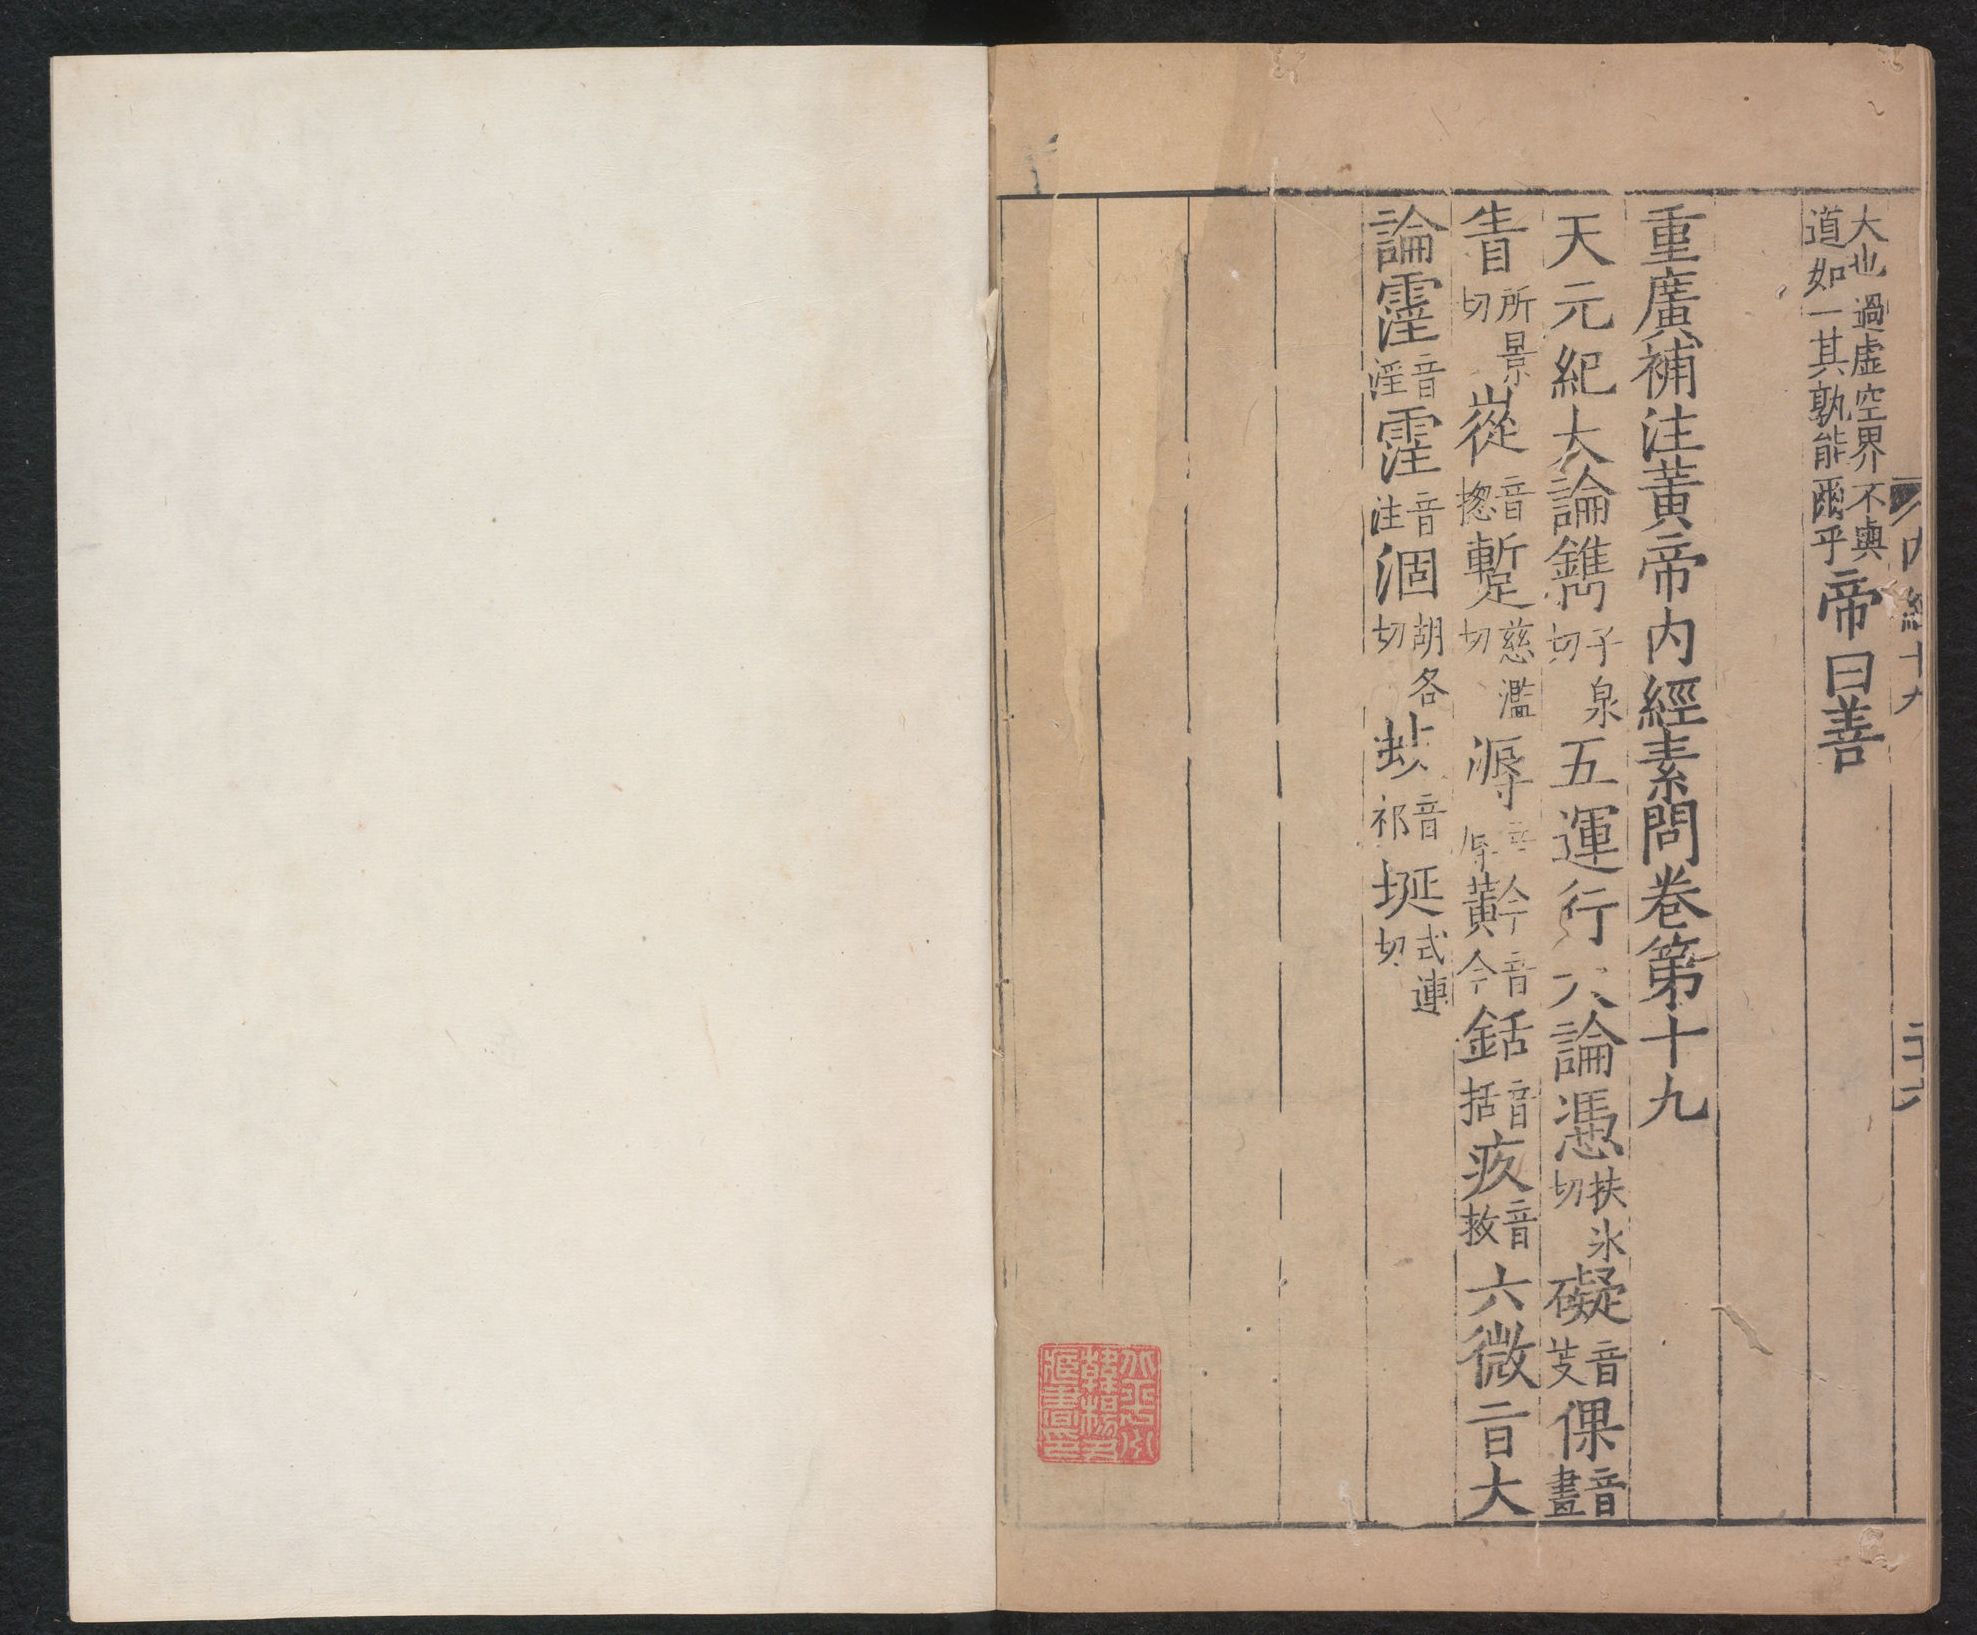 内經十九
大也過虛空界不與
道如一其孰能爾乎
帝曰善
重廣補注黃帝內經素問卷第十九
天元紀大論鐫子泉切五運行大論憑扶氷切礙音艾倮音畫
眚所景切㞞音揔蹔慈濫切溽音辱黅音今銛音括疚音救六微旨大
論霪音淫霔音注涸胡各切音祁埏式連切